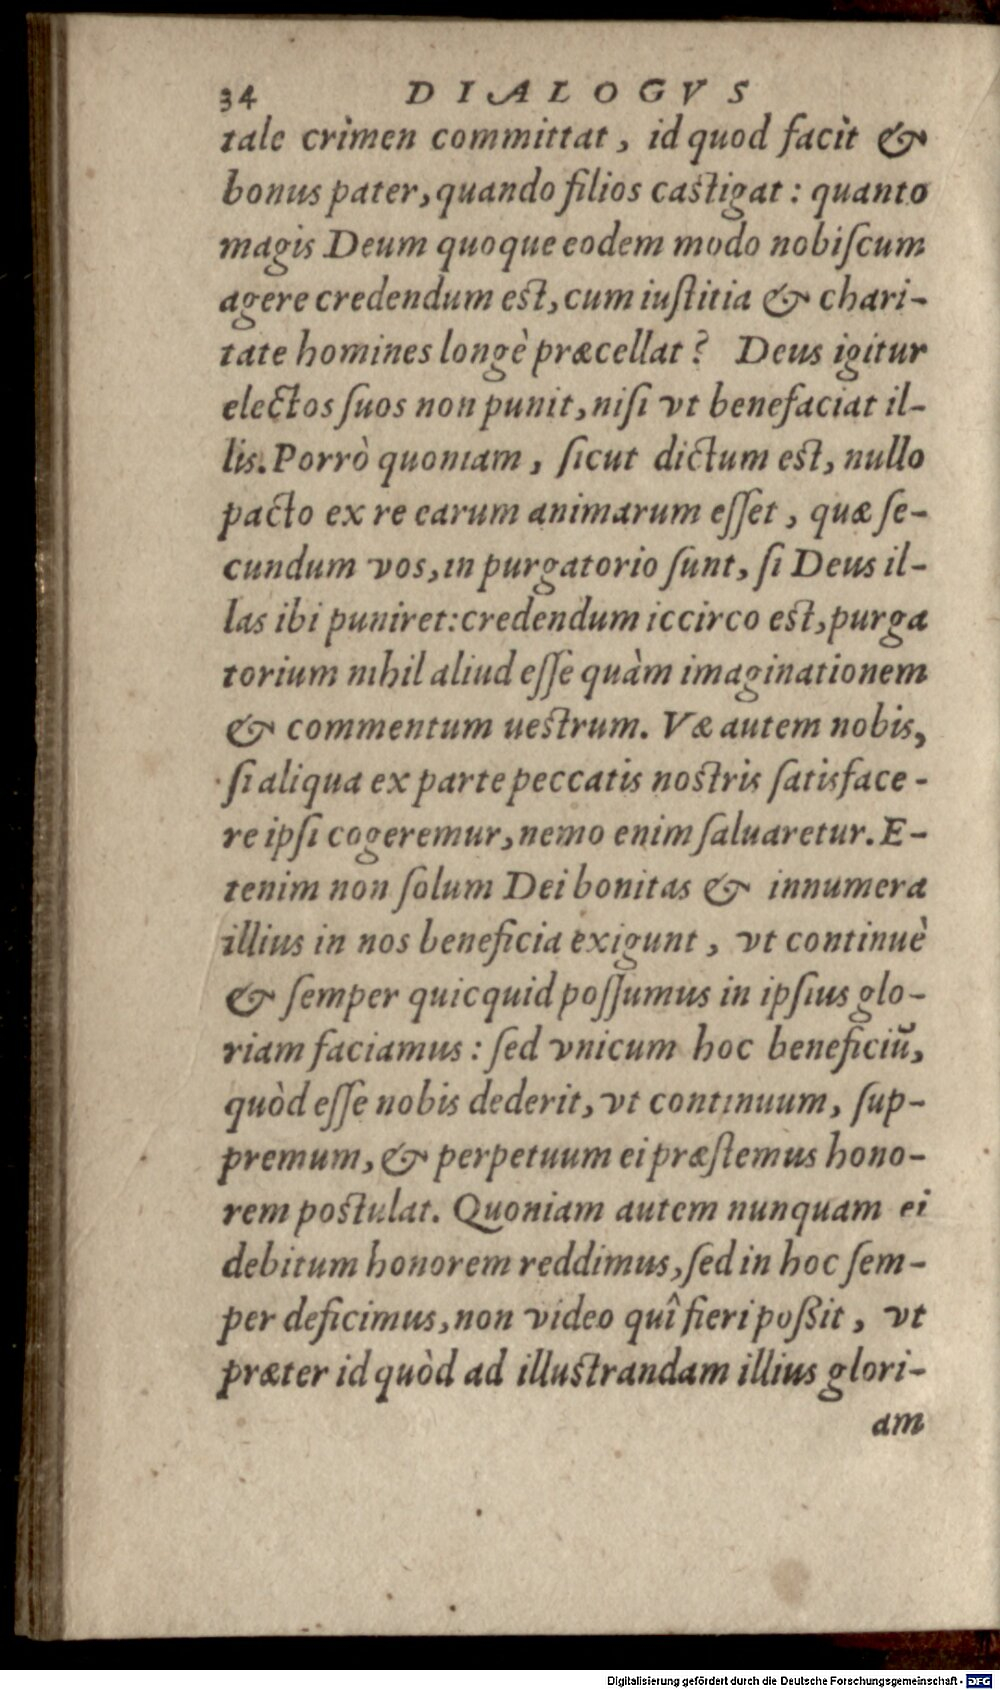 34 DIALOGVS
tale crimen committat, id quod facit &
bonus pater, quando filios castigat: quanto
magis Deum quoque eodem modo nobiſcum
agere credendum est, cum iuſtitia & chari-
tate homines longè præcellat? Deus igitur
electos ſuos non punit, niſi vt benefaciat il-
lis. Porrò quoniam, ſicut dictum est, nullo
pacto ex re earum animarum eſſet, quæ ſe-
cundum vos, in purgatorio ſunt, ſi Deus il-
las ibi puniret: credendum iccirco est, purga
torium nihil aliud eſſe quàm imaginationem
& commentum uestrum. Væ autem nobis,
ſi aliqua ex parte peccatis nostris ſatisface-
re ipſi cogeremur, nemo enim ſaluaretur. E-
tenim non ſolum Dei bonitas & innumera
illius in nos beneficia exigunt, vt continuè
& ſemper quicquid poſſumus in ipſius glo-
riam faciamus: ſed vnicum hoc beneficiũ,
quòd eſſe nobis dederit, vt continuum, ſup-
premum, & perpetuum ei præſtemus hono-
rem postulat. Quoniam autem nunquam ei
debitum honorem reddimus, ſed in hoc ſem-
per deficimus, non video quî fieri poßit, vt
præter id quòd ad illustrandam illius glori-
am
Digitalisierung gefördert durch die Deutsche Forschungsgemeinschaft - DFG